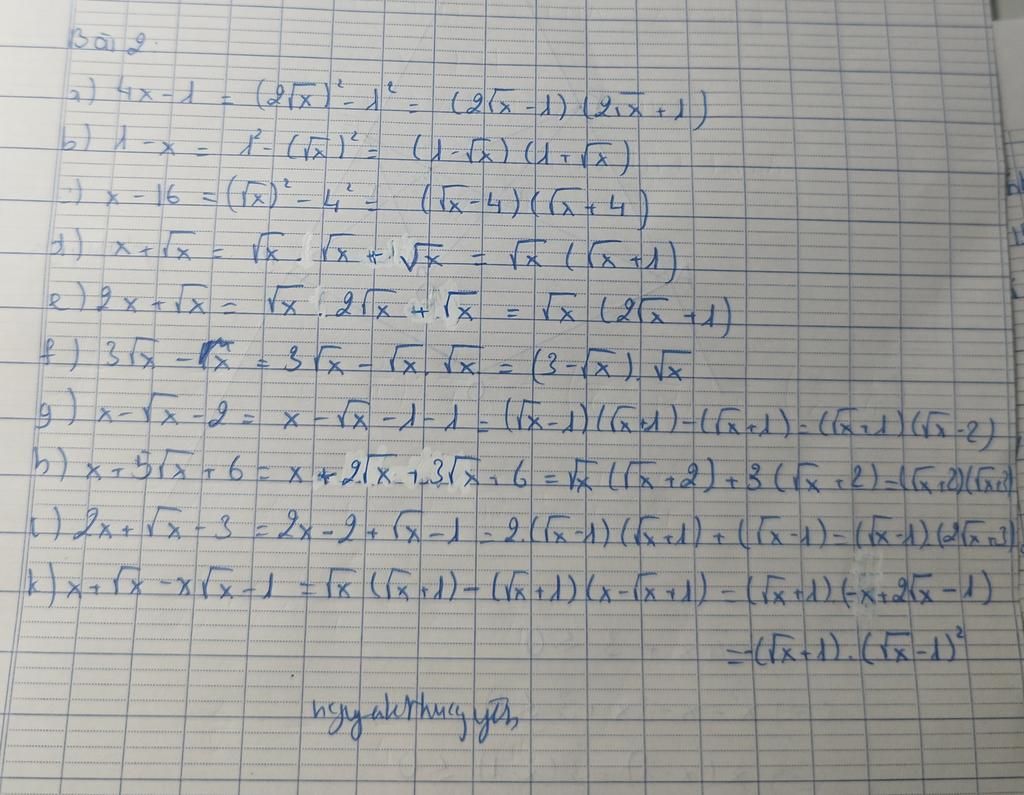 Bài 2.
a) 4x - 1 = (2√x)² - 1² = (2√x - 1) (2√x + 1)
b) 1 - x = 1² - (√x)² = (1 - √x) (1 + √x)
c) x - 16 = (√x)² - 4² = (√x - 4) (√x + 4)
d) x + √x = √x . √x + √x = √x (√x + 1)
e) 2x + √x = √x . 2√x + √x = √x (2√x + 1)
f) 3√x - x = 3√x - √x . √x = (3 - √x) . √x
g) x - √x - 2 = x - √x - 1 - 1 = (√x - 1) (√x + 1) - (√x + 1) = (√x + 1) (√x - 2)
h) x + 5√x + 6 = x + 2√x + 3√x + 6 = √x (√x + 2) + 3 (√x + 2) = (√x + 2) (√x + 3)
i) 2x + √x - 3 = 2x - 2 + √x - 1 = 2. (√x - 1) (√x + 1) + (√x - 1) = (√x - 1) . (2√x + 3)
k) x + √x - x√x - 1 = √x (√x + 1) - (√x + 1) (x - √x + 1) = (√x + 1) . (-x + 2√x - 1)
= -(√x + 1) . (√x - 1)²